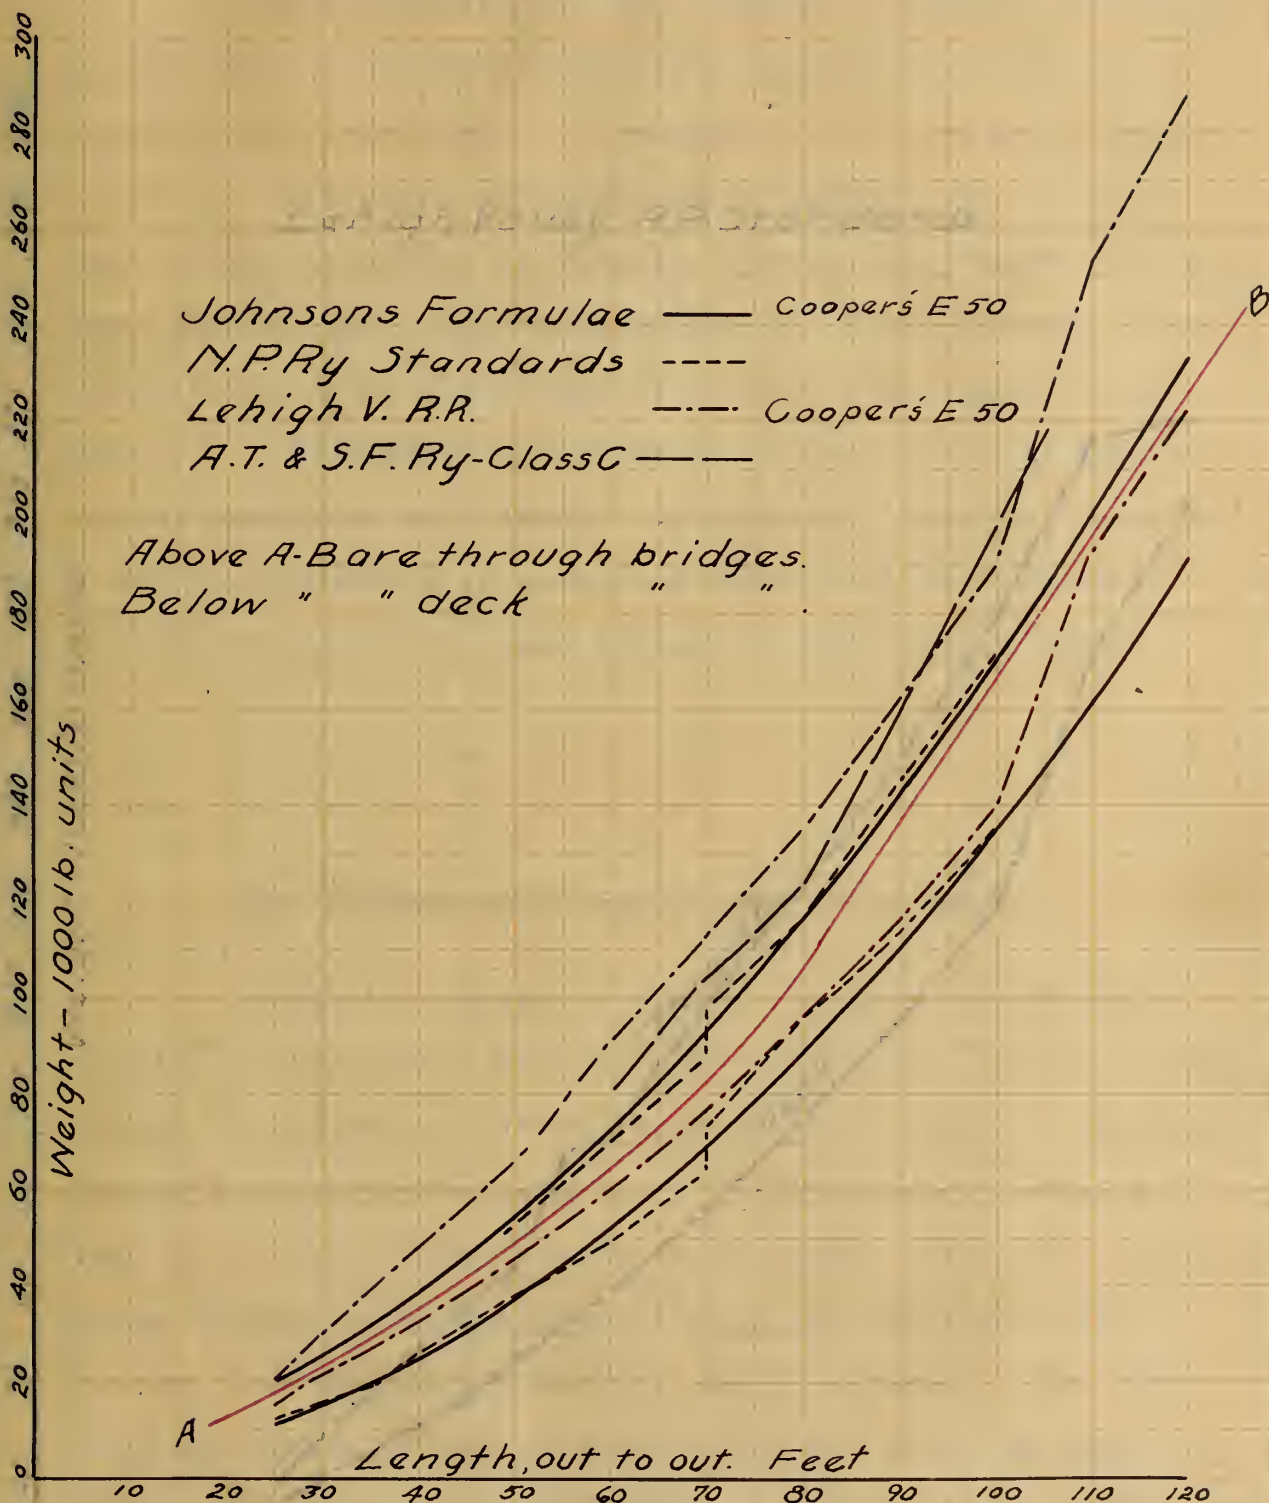 300
280
260
240
220
200
180
160
140
120
100
80
60
40
20
0
Weight - 1000 lb. units
Johnsons Formulae Cooper's E 50
N.P.Ry Standards
Lehigh V. R.R. Cooper's E 50
A.T. & S.F. Ry-Class C
Above A-B are through bridges.
Below " " deck " " .
B
A
Length, out to out. Feet
10 20 30 40 50 60 70 80 90 100 110 120